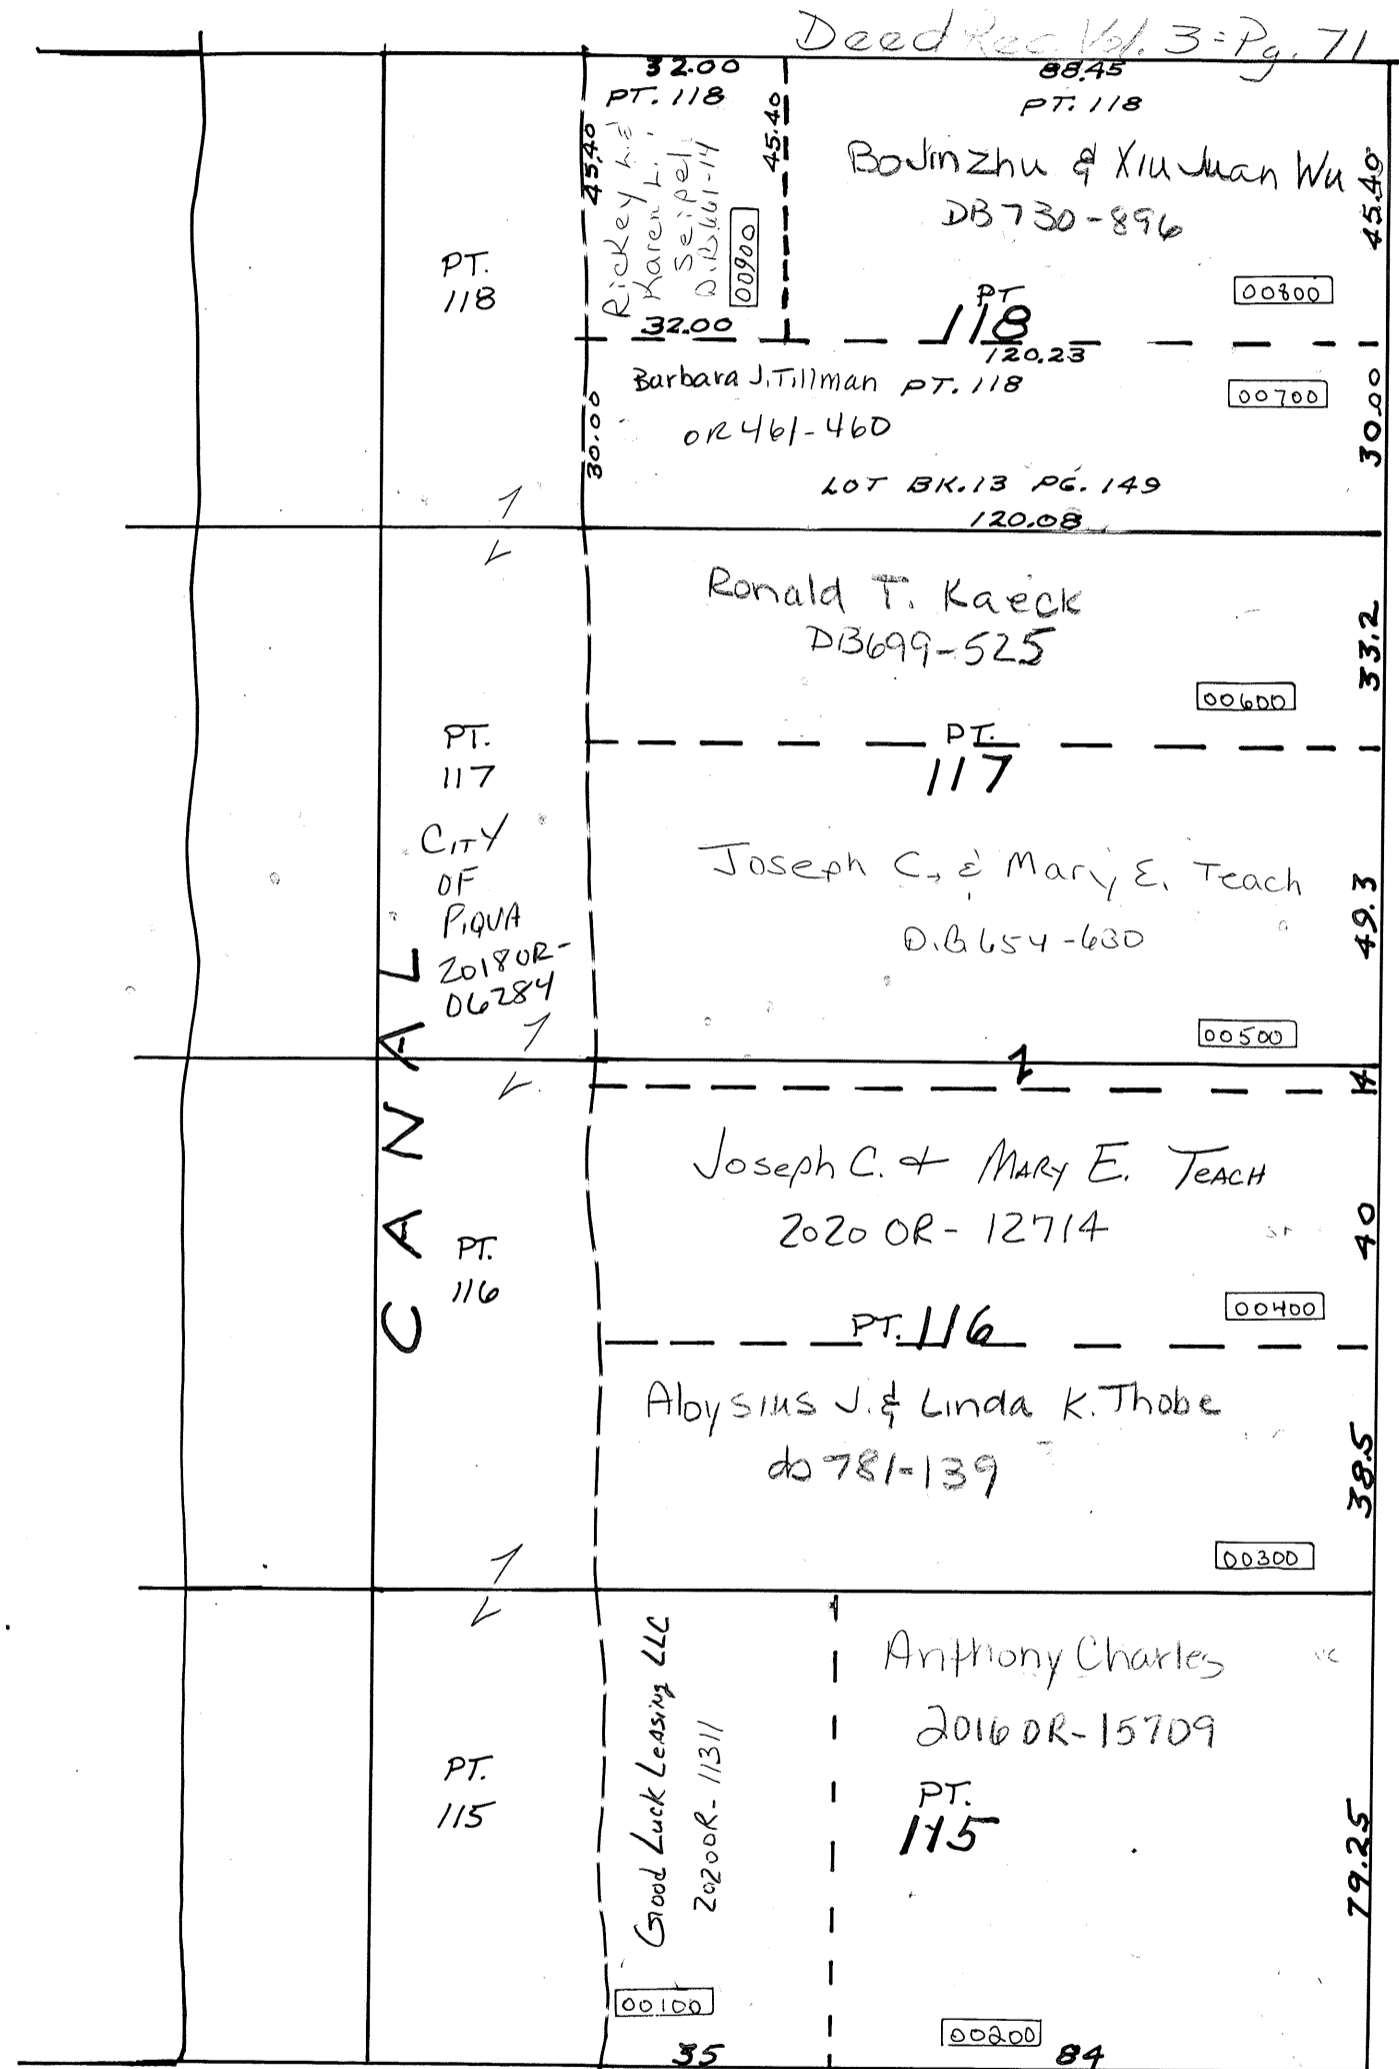 Deed Rec. Vol. 3 = Pg. 71
32.00
88.45
PT. 118
PT. 118
45.40
45.40
45.40
Rickey L. &
Karen L.
Seipel
D.B. 661-14
00900
BoJin Zhu & Xiu Juan Wu
DB 730-896
00800
PT.
118
32.00
PT
118
120.23
Barbara J. Tillman PT. 118
00700
OR 461-460
30.00
30.00
LOT BK. 13 PG. 149
120.08
Ronald T. Kaeck
DB699-525
33.2
00600
PT.
117
PT.
117
CITY
OF
PIQUA
2018OR-
06284
Joseph C. & Mary E. Teach
D.B 654-630
49.3
00500
CANAL
14
Joseph C. + MARY E. TEACH
2020 OR- 12714
40
PT.
116
00400
PT. 116
Aloysius J. & Linda K. Thobe
db 781-139
38.5
00300
Good Luck Leasing LLC
2020OR-11311
Anthony Charles
2016 OR-15709
PT.
115
PT.
115
79.25
00100
00200
35
84